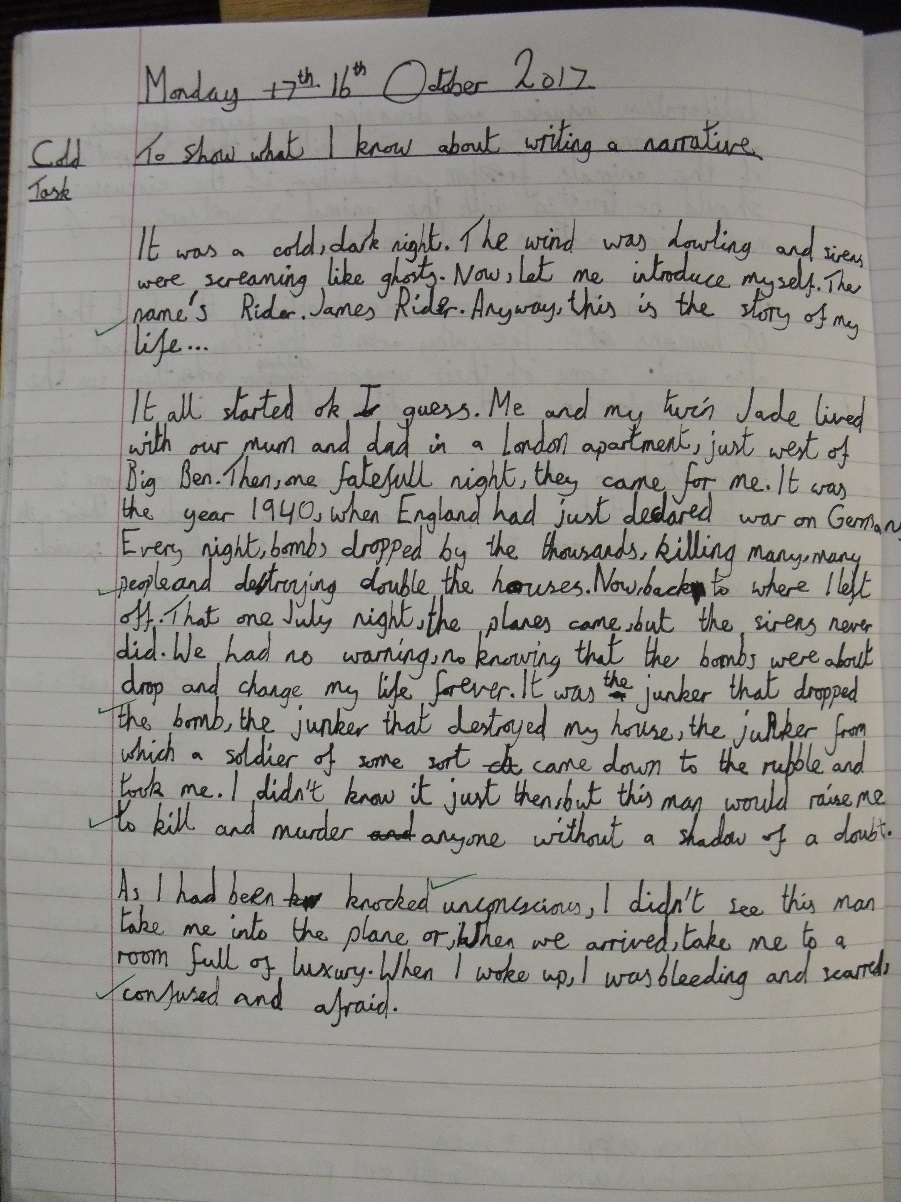 Monday 17th 16th October 2017
Cold To show what I know about writing a narrative.
Task
It was a cold, dark night. The wind was howling and sirens
were screaming like ghosts. Now, let me introduce myself. The
name's Rider. James Rider. Anyway, this is the story of my
life...
It all started ok I guess. Me and my twin Jade lived
with our mum and dad in a London apartment, just west of
Big Ben. Then, one fatefull night, they came for me. It was
the year 1940, when England had just declared war on Germany
Every night, bombs dropped by the thousands, killing many, many
people and destroying double the houses. Now, back to where I left
off. That one July night, the planes came, but the sirens never
did. We had no warning, no knowing that the bombs were about
drop and change my life forever. It was the junker that dropped
the bomb, the junker that destroyed my house, the junker from
which a soldier of some sort came down to the rubble and
took me. I didn't know it just then, but this man would raise me
to kill and murder and anyone without a shadow of a doubt.
As I had been knocked unconscious, I didn't see this man
take me into the plane or, when we arrived, take me to a
room full of luxury. When I woke up, I was bleeding and scarred,
confused and afraid.